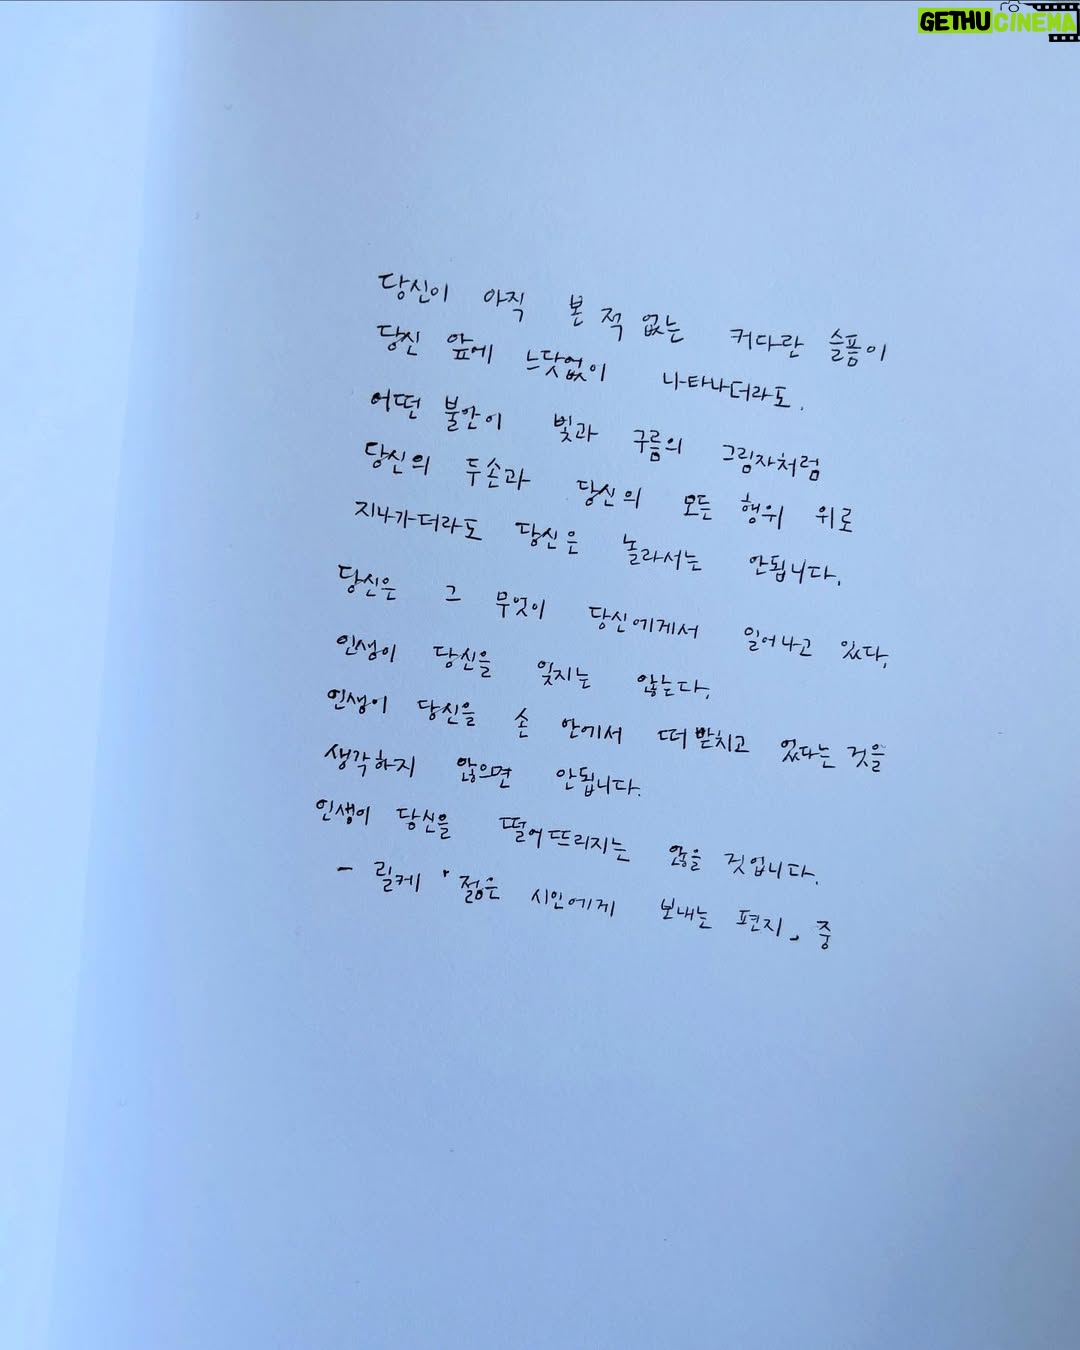 GETHUCINEMA
당신이 아직 본 적 없는 커다란 슬픔이
당신 앞에 느닷없이 나타나더라도.
어떤 불안이 빛과 구름의 그림자처럼
당신의 두손과 당신의 모든 행위 위로
지나가더라도 당신은 놀라서는 안됩니다.
당신은 그 무엇이 당신에게서 일어나고 있다,
인생이 당신을 잊지는 않는다,
인생이 당신을 손 안에서 떠받치고 있다는 것을
생각하지 않으면 안됩니다.
인생이 당신을 떨어뜨리지는 않을 것입니다.
- 릴케 「젊은 시인에게 보내는 편지」 중